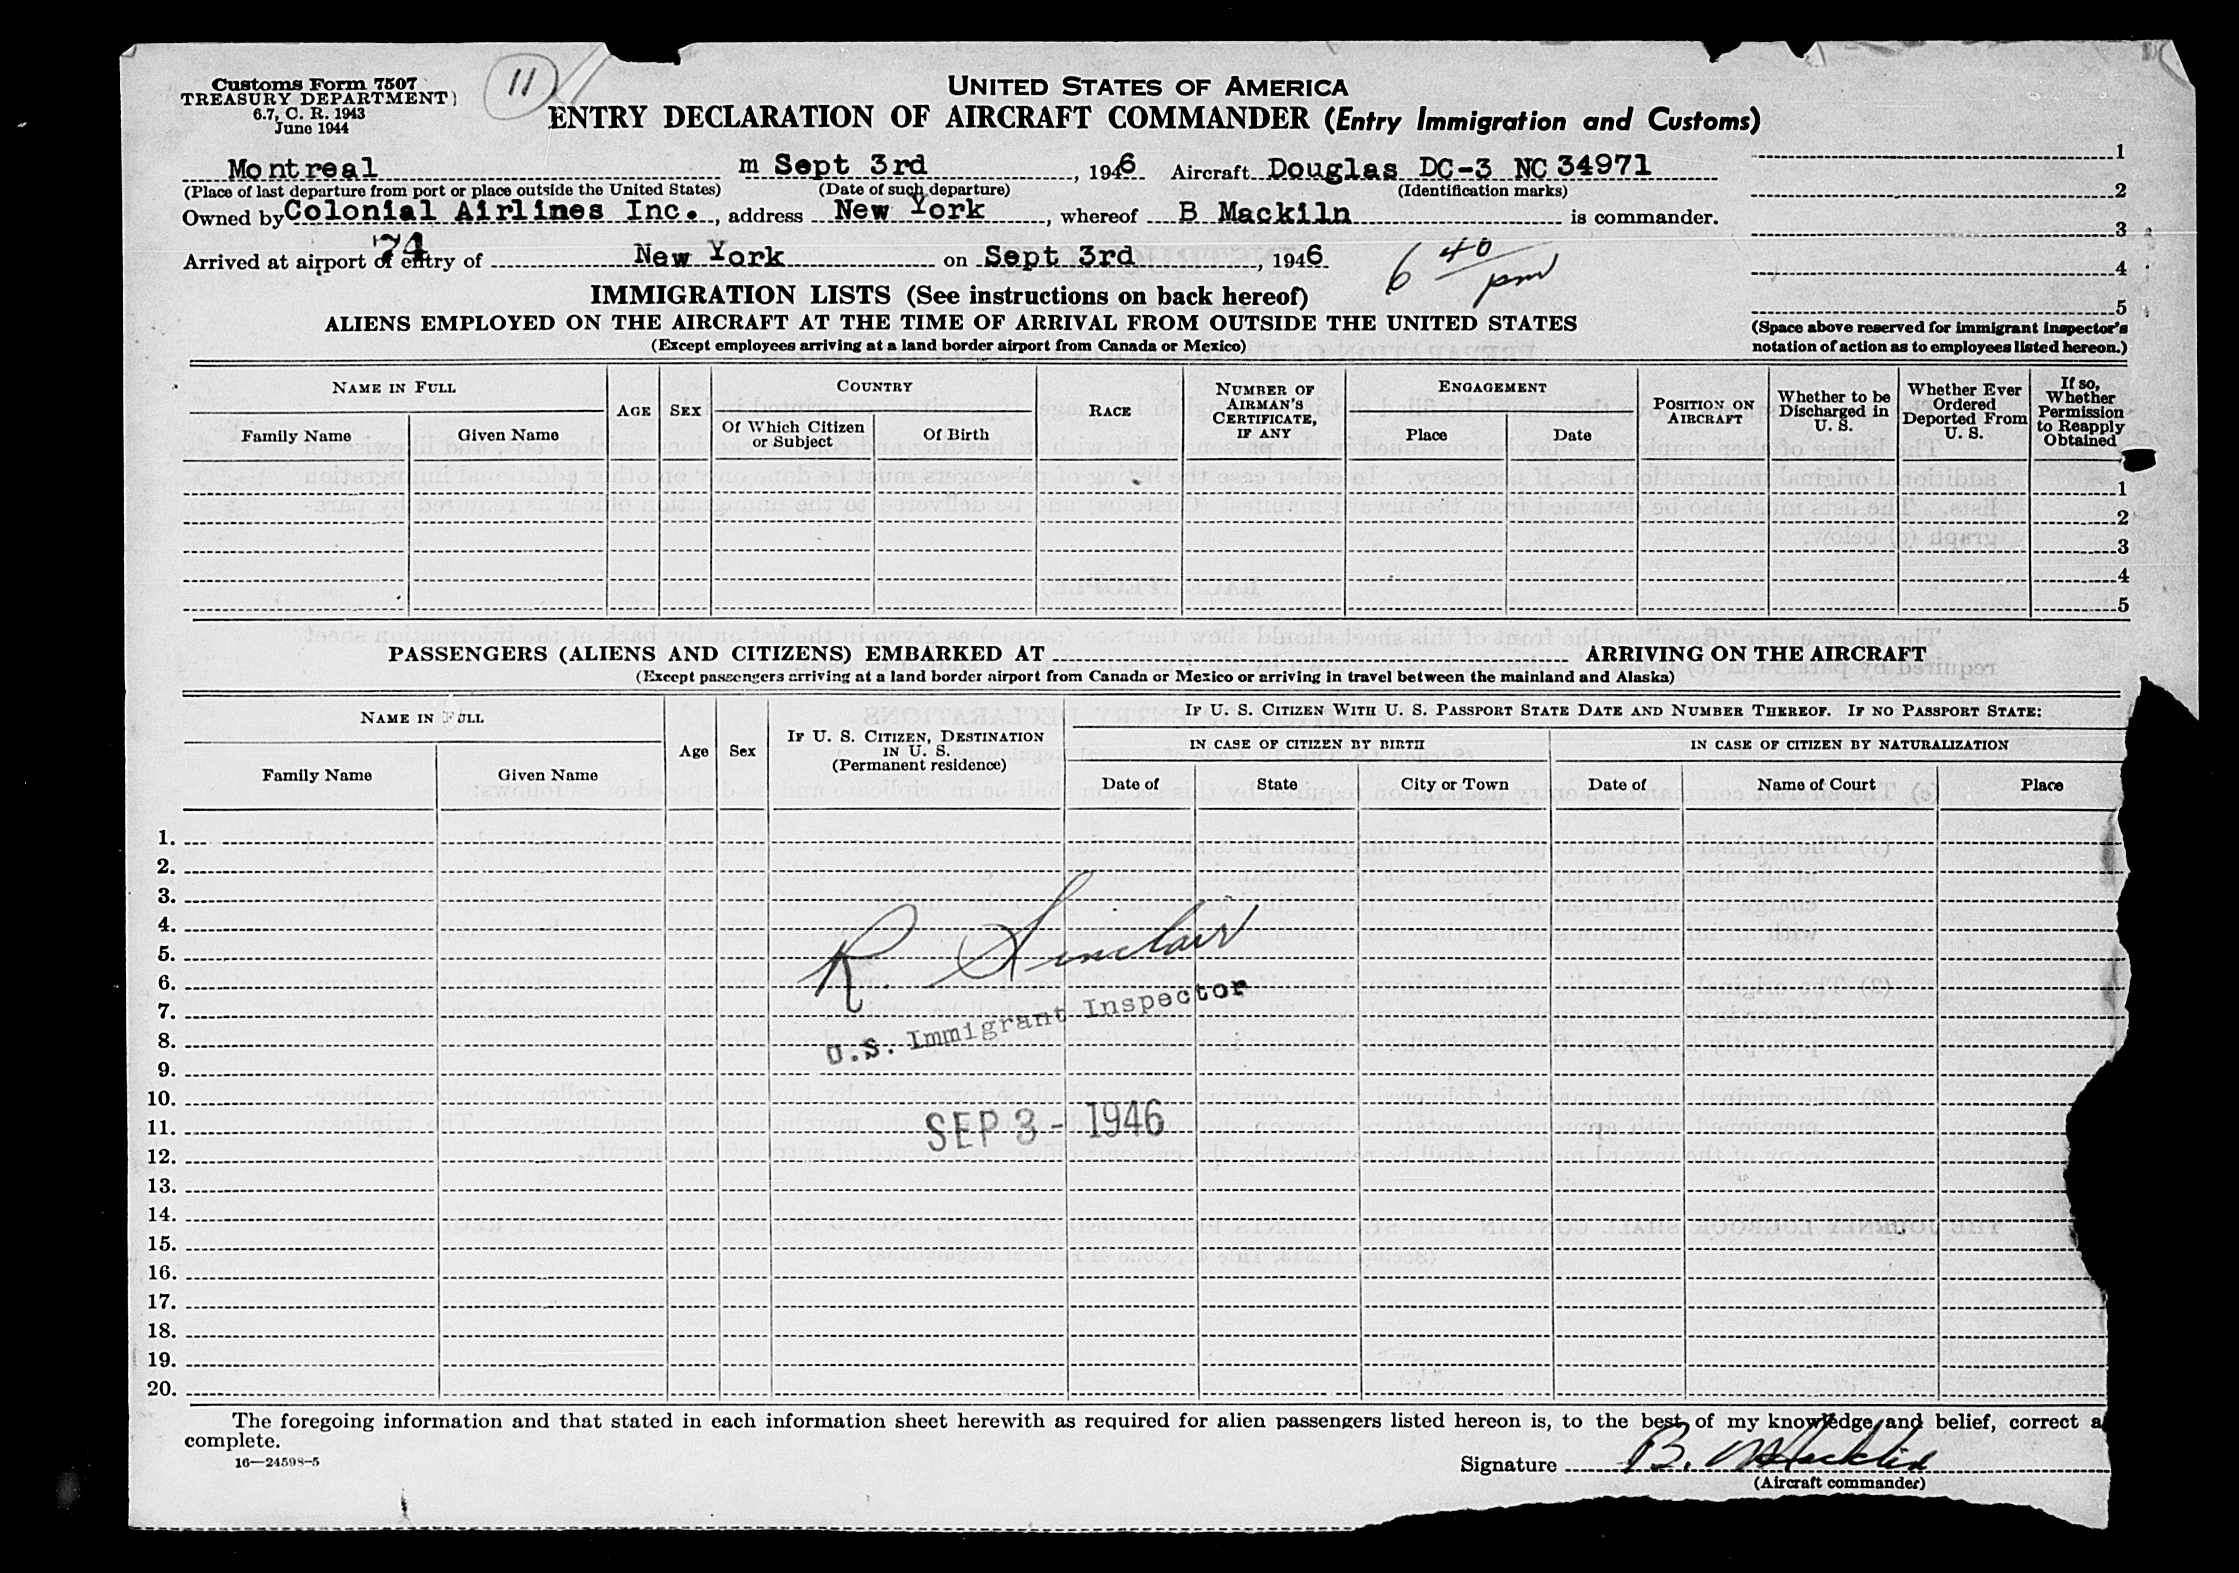 Customs Form 7507
TREASURY DEPARTMENT
6.7, C. R. 1943
June 1944
11
UNITED STATES OF AMERICA
ENTRY DECLARATION OF AIRCRAFT COMMANDER (Entry Immigration and Customs)
Montreal m Sept 3rd, 1946 Aircraft Douglas DC-3 NC 34971
(Place of last departure from port or place outside the United States) (Date of such departure) (Identification marks)
Owned by Colonial Airlines Inc., address New York, whereof B Mackiln is commander.
74
Arrived at airport of entry of New York on Sept 3rd, 1946
6 40 pm
1
2
3
4
5
(Space above reserved for immigrant inspector's
notation of action as to employees listed hereon.)
IMMIGRATION LISTS (See instructions on back hereof)
ALIENS EMPLOYED ON THE AIRCRAFT AT THE TIME OF ARRIVAL FROM OUTSIDE THE UNITED STATES
(Except employees arriving at a land border airport from Canada or Mexico)
NAME IN FULL
Family Name
Given Name
AGE
SEX
COUNTRY
Of Which Citizen
or Subject
Of Birth
RACE
NUMBER OF
AIRMAN'S
CERTIFICATE,
IF ANY
ENGAGEMENT
Place
Date
POSITION ON
AIRCRAFT
Whether to be
Discharged in
U. S.
Whether Ever
Ordered
Deported From
U. S.
If so,
Whether
Permission
to Reapply
Obtained
1
2
3
4
5
PASSENGERS (ALIENS AND CITIZENS) EMBARKED AT ARRIVING ON THE AIRCRAFT
(Except passengers arriving at a land border airport from Canada or Mexico or arriving in travel between the mainland and Alaska)
NAME IN FULL
Family Name
Given Name
Age
Sex
IF U. S. CITIZEN, DESTINATION
IN U. S.
(Permanent residence)
IF U. S. CITIZEN WITH U. S. PASSPORT STATE DATE AND NUMBER THEREOF. IF NO PASSPORT STATE:
IN CASE OF CITIZEN BY BIRTH
IN CASE OF CITIZEN BY NATURALIZATION
Date of
State
City or Town
Date of
Name of Court
Place
1.
2.
3.
4.
5.
6.
7.
8.
9.
10.
11.
12.
13.
14.
15.
16.
17.
18.
19.
20.
R. Sinclair
U.S. Immigrant Inspector
SEP 3 - 1946
The foregoing information and that stated in each information sheet herewith as required for alien passengers listed hereon is, to the best of my knowledge and belief, correct a
complete.
16—24598-5
Signature B. Macklin
(Aircraft commander)